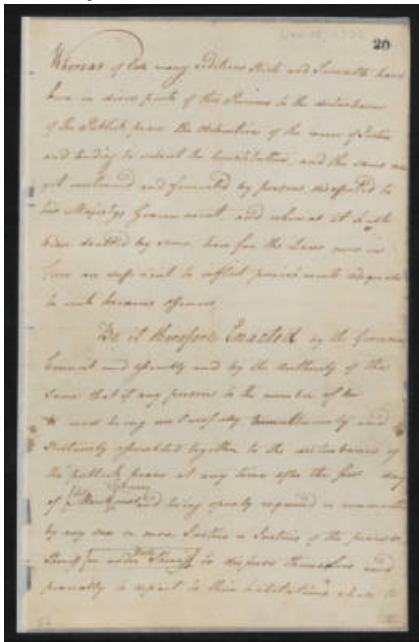 20
Whereas of late many seditious Riots and Tumults have
been in divers parts of this Province to the disturbance
of the Publick peace the obstruction of the course of Justice
and tending to subvert the Constitution, and the same are
yet continued and fomented by persons disaffected to
his Majestys Government and whereas it hath
been doubted by some how far the Laws now in
force are sufficient to inflict punishments adequate
to such heinous offences
Be it therefore Enacted by the Governor
Council and Assembly and by the authority of the
same that if any persons to the number of ten
or more being unlawfully tumultuously and
riotously assembled together to the disturbance of
the publick peace at any time after the first day
of February and being openly required or commanded
by any one or more Justice or Justices of the peace or
Sheriff or under Sheriff to disperse themselves and
peaceably to depart to their habitations shall to